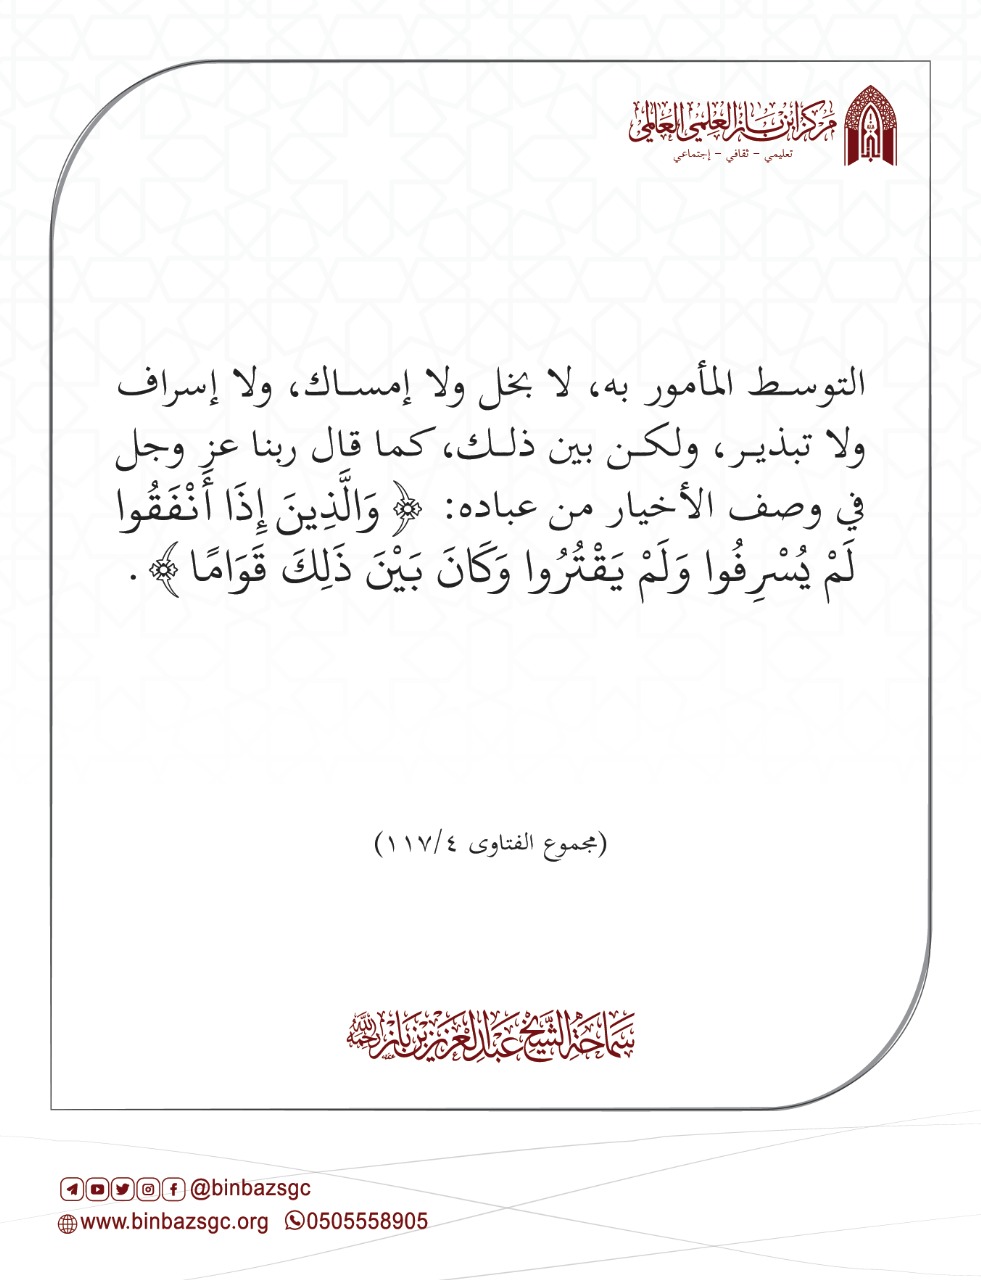 مركز ابن باز العلمي العالمي
تعليمي - ثقافي - إجتماعي
التوسط المأمور به، لا بخل ولا إمساك، ولا إسراف
ولا تبذير، ولكن بين ذلك، كما قال ربنا عز وجل
في وصف الأخيار من عباده: ﴿ وَالَّذِينَ إِذَا أَنْفَقُوا
لَمْ يُسْرِفُوا وَلَمْ يَقْتُرُوا وَكَانَ بَيْنَ ذَلِكَ قَوَامًا ﴾ .
(مجموع الفتاوى ٤/١١٧)
سماحة الشيخ عبد العزيز بن باز رحمه الله
@binbazsgc
www.binbazsgc.org 0505558905